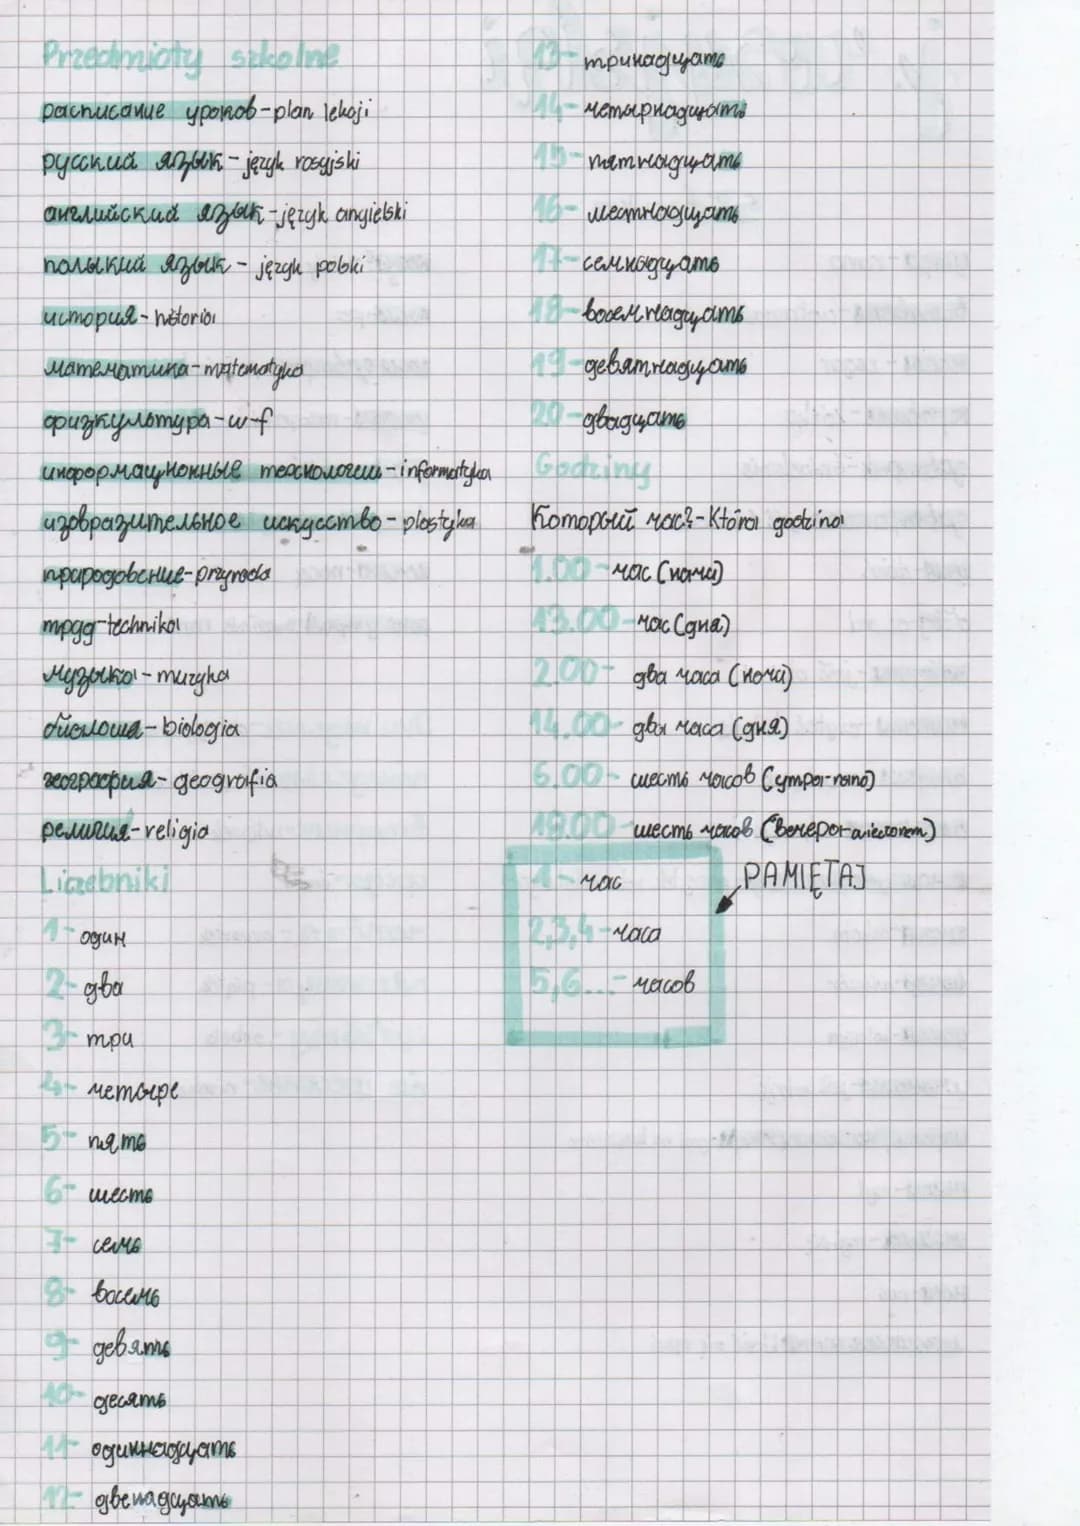 Przedmioty szkolne
расписание уроков - plan lekcji
русский язык - język rosyjski
английский язык - język angielski
полький язык - język polski
история - historia
математика - matematyka
физкультура - w-f
информационные технологии - informatyka
изобразительное искусство - plastyka
природовение - przyroda
труд - technika
музыка - muzyka
биология - biologia
география - geografia
религия - religia
Liczebniki
1- один
2- два
3- три
4- четыре
5- пять
6- шесть
7- семь
8- восемь
9- девять
10- десять
11- одиннадцать
12- двенадцать
13- тринадцать
14- четырнадцать
15- пятнадцать
16- шестнадцать
17- семнадцать
18- восемнадцать
19- девятнадцать
20- двадцать
Godziny
Который час? - Która godzina
1.00 - час (ночи)
13.00 - час (дня)
2.00 - два часа (ночи)
14.00 - два часа (дня)
6.00 - шесть часов (утра-rano)
19.00 - шесть часов (вечера-wieczorem)
1 - час
PAMIĘTAJ
2,3,4 - часа
5,6... - часов